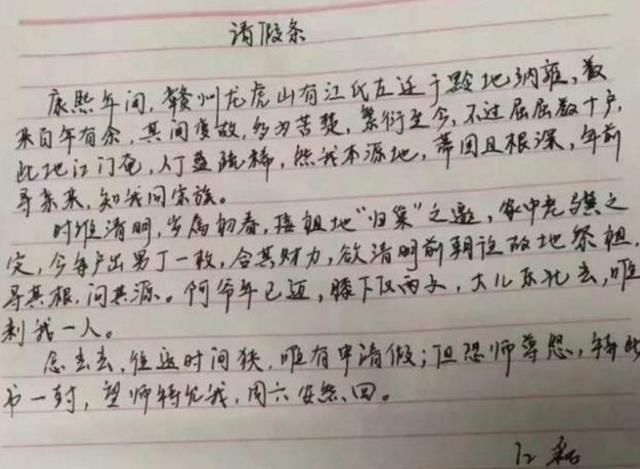 请假条
康熙年间，赣州龙虎山有江氏左迁于黔地纳雍，数
来百年有余，其间变故，多为苦楚，繁衍至今，不过屈屈数十户，
此地江门奄，人丁益疏稀，然我本源地，蒂固且根深，年前
寻亲来，知我同宗族。
时维清明，岁属初春，接祖地“归巢”之邀，家中老
定，今每户出男丁一枚，合其财力，欲清明前朝往故地祭祖，
寻其根，问其源。阿爷年已迈，膝下仅两子，大儿东北去，唯
剩我一人。
念去去，往返时间狭，唯有申请假；但恐师尊怒，
书一封，望师特允我，周六安然回。
江